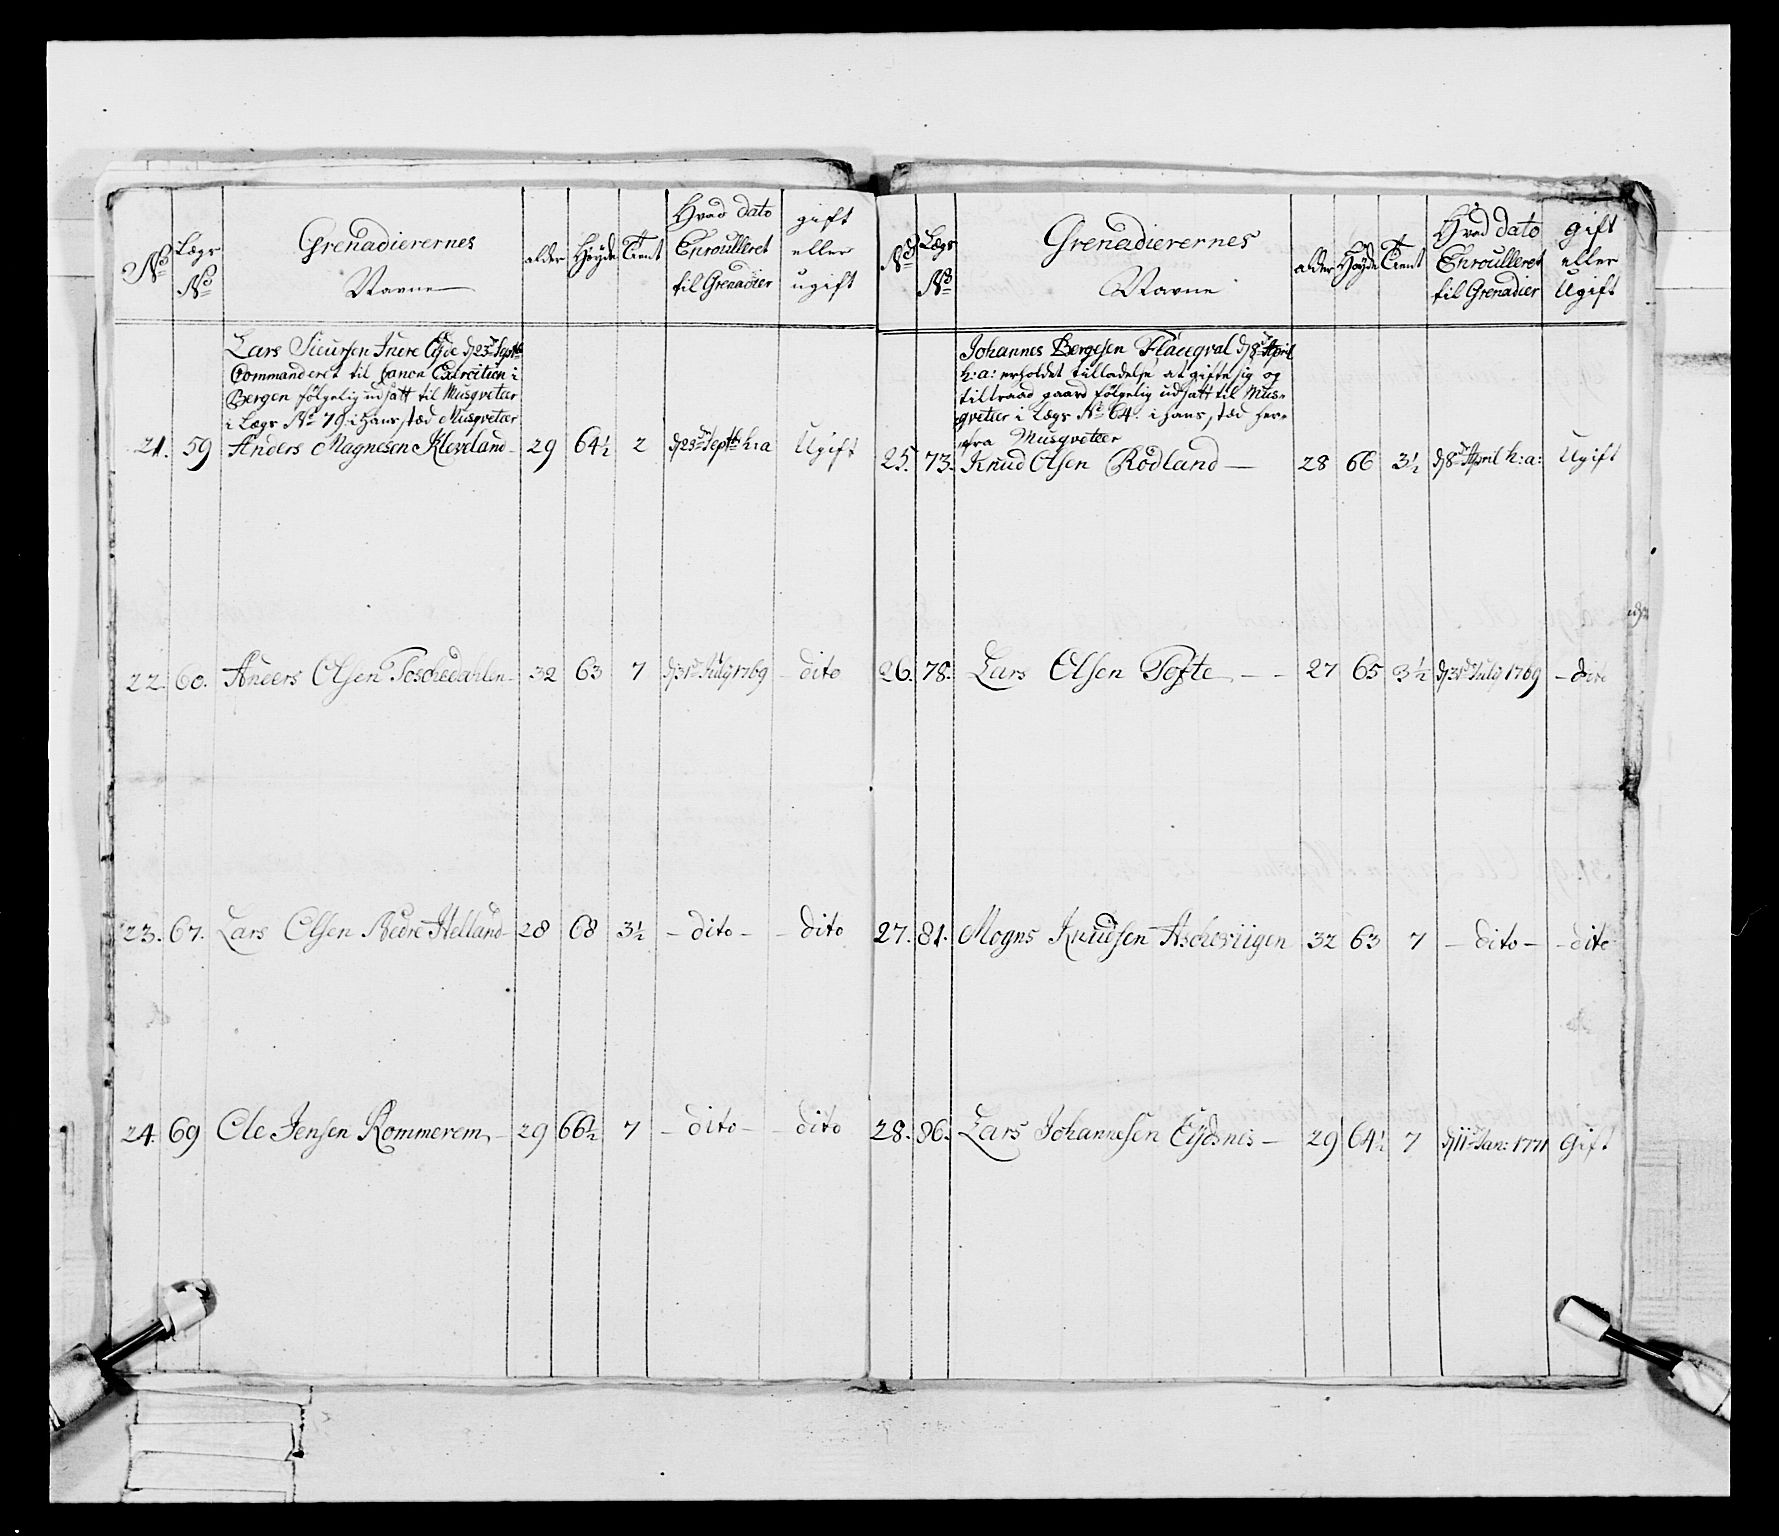 No Lægs No Grenadierernes Navne alder Høyde Tient Hvad dato Enroulleret til Grenadier gift eller ugift
Lars Siursen Inere Eyde d 23de Septb:
Commanderet til Canon Exircitien i
Bergen følgelig udsatt til Musqveteer
i Lægs No 79. i Hans stæd Musqveteer
21. 59 Anders Magnesen Kleveland 29 64½ 2 d 23de Septb: h: a Ugift
22. 60. Aneers Olsen Toschedahlen 32 63 7 d 31te July 1769 dito
23. 67. Lars Olsen Nedre Helland 28 68 3½ dito dito
24 69 Ole Jensen Rommerem 29 66½ 7 dito dito
No Lægs No Grenadierernes Navne alder Høyde Tient Hvad dato Enroulleret til Grenadier gift eller Ugift
Johannes Bergesen Flacqval d 8de April
h: a: erholdet tilladelse at gifte sig og
tiltraad gaard følgelig udsatt til Mus-
qveteer i Lægs No 64. i Hans stæd her-
fra Musqveteer
25. 73. Knud Olsen Rødland 28 66 3½ d 8de April h: a: Ugift
26. 78. Lars Olsen Tofte 27 65 3½ d 31te July 1769 dito
27. 81. Mogns Knudsen Ascheviigen 32 63 7 dito dito
28. 86. Lars Johannesen Eydsnes 29 64½ 7 d 11te Jan: 1771 Gift